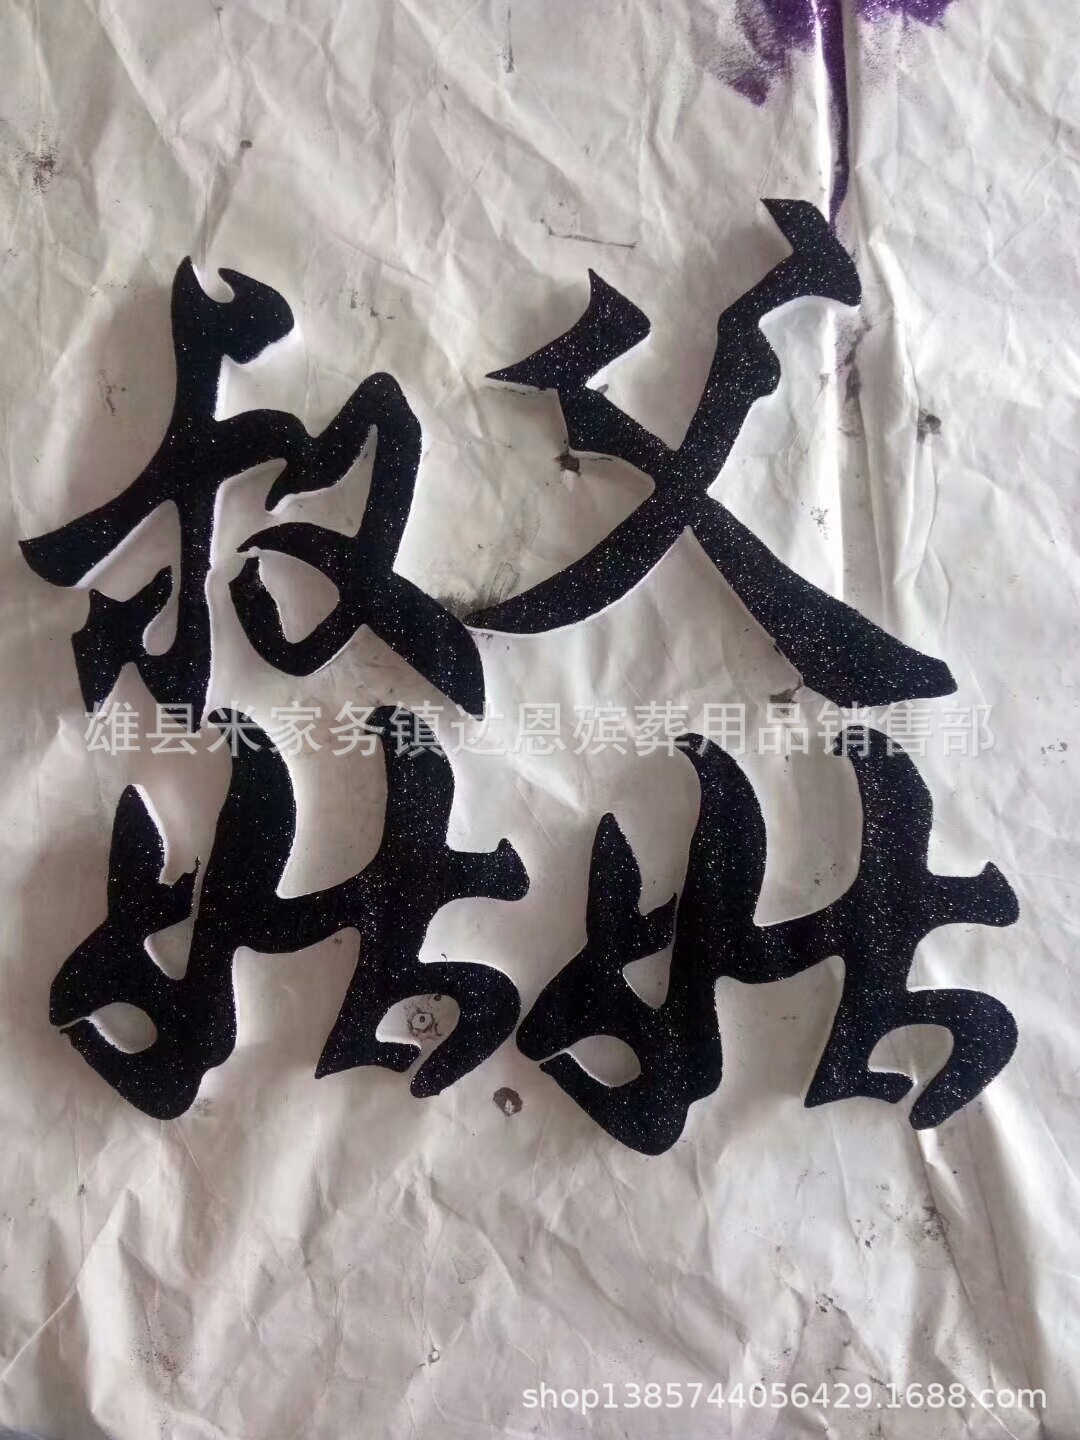 叔父
姑姑
雄县米家务镇达恩殡葬用品销售部
shop1385744056429.1688.com